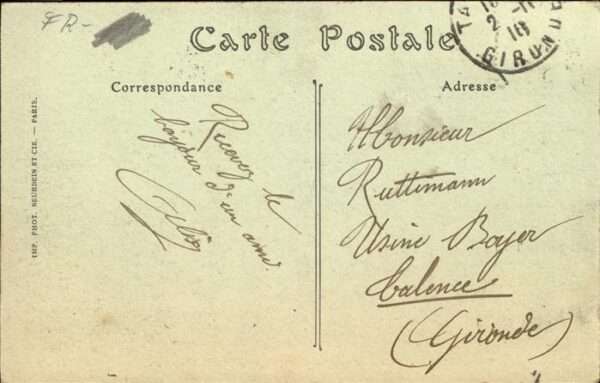 FR-
Carte Postale
Correspondance
Adresse
Recevez le
bonjour d'un ami
Monsieur
Ruttimann
Usine Bayer
Talence
(Gironde)
GIRONDE
18
IMP. PHOT. NEURDEIN ET CIE. — PARIS.